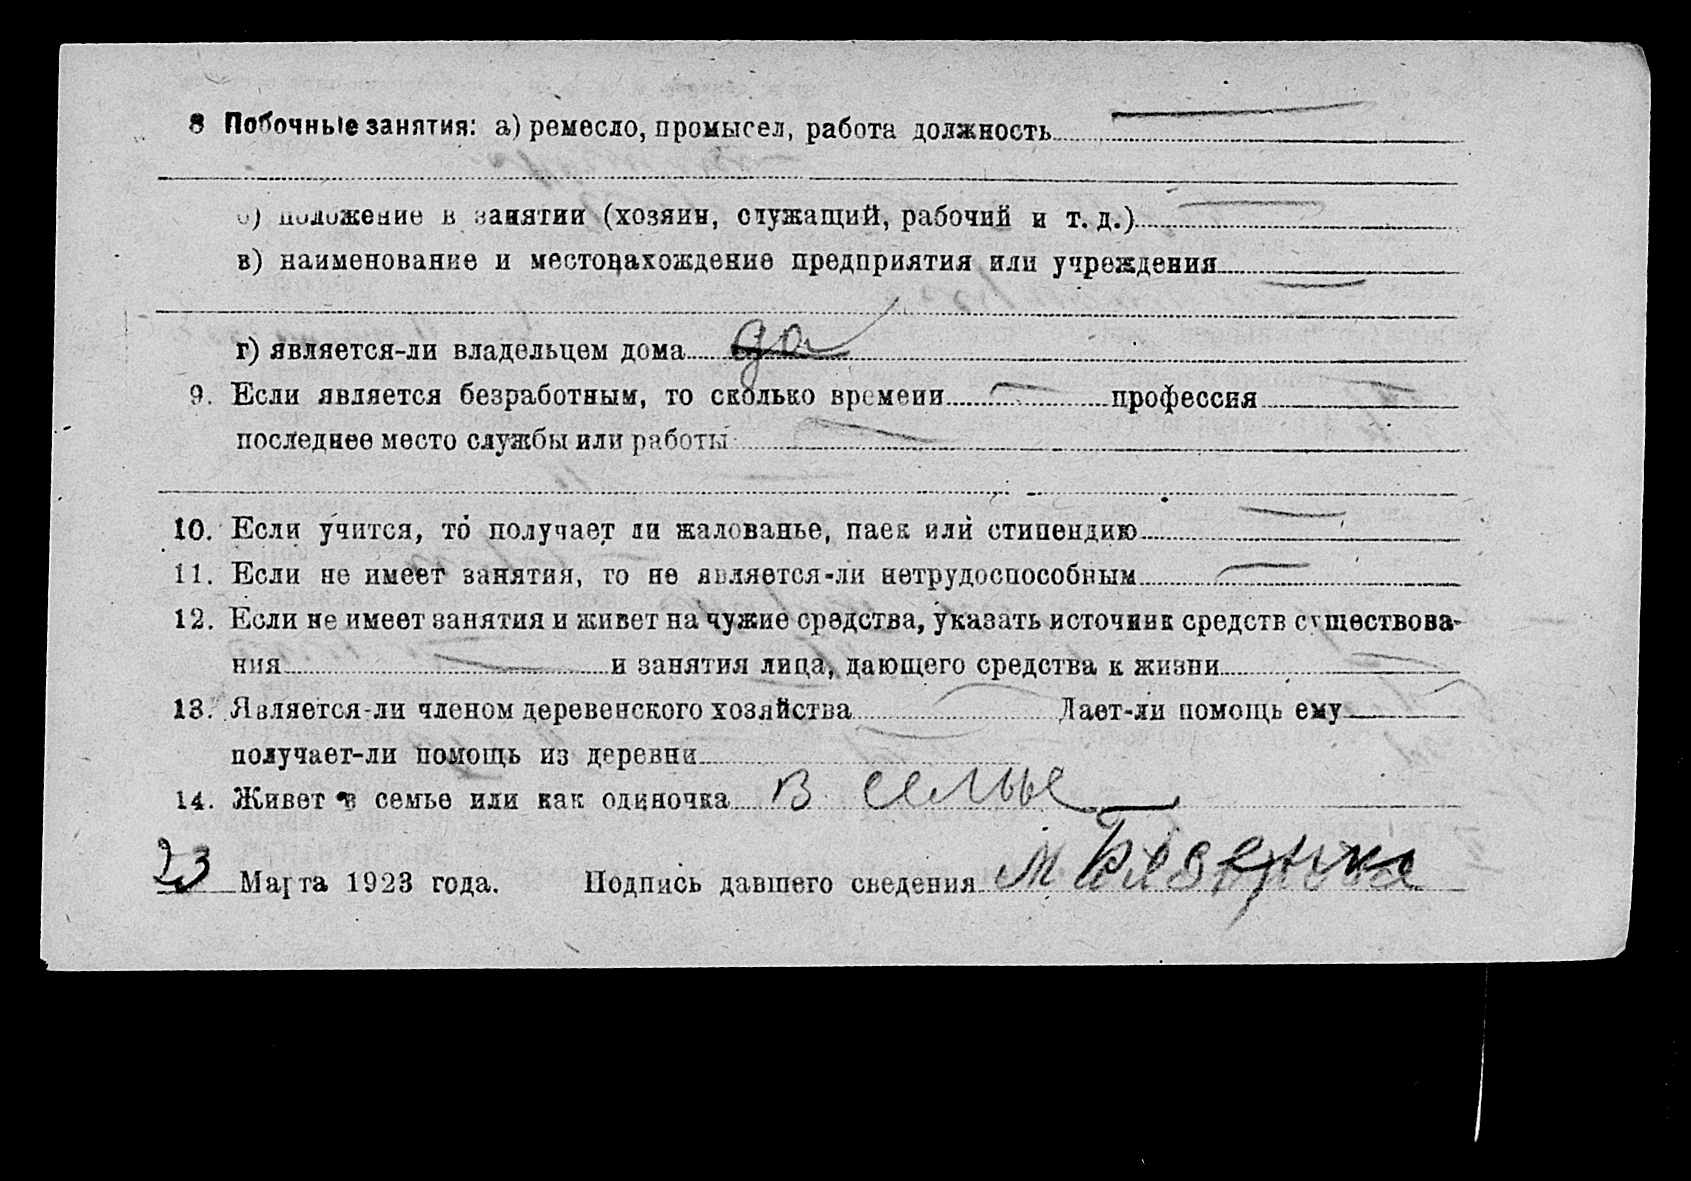 8 Побочные занятия: а) ремесло, промысел, работа должность —
б) положение в занятии (хозяин, служащий, рабочий и т. д.) —
в) наименование и местонахождение предприятия или учреждения —
г) является-ли владельцем дома да
9. Если является безработным, то сколько времени — профессия —
последнее место службы или работы —
10. Если учится, то получает ли жалованье, паек или стипендию —
11. Если не имеет занятия, то не является-ли нетрудоспособным —
12. Если не имеет занятия и живет на чужие средства, указать источник средств существова-
ния — и занятия лица, дающего средства к жизни —
13. Является-ли членом деревенского хозяйства — Дает-ли помощь ему —
получает-ли помощь из деревни —
14. Живет в семье или как одиночка в семье
23 Марта 1923 года. Подпись давшего сведения М